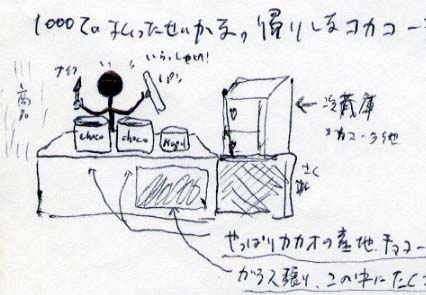 1000での払ったせいかるっ 帰りしるコカコー
いらっしゃい!
ナイフ
パン
choco
choco
冷蔵庫
コカコーラ他
さく
やっぱりカカオの産地.チョコー
ガラス張り、この中にたく